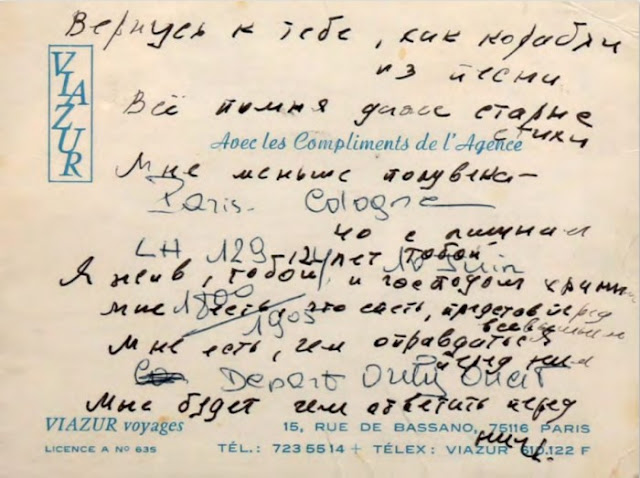 Вернусь к тебе, как корабли
из песни
VIAZUR
Всё помня даже старые
стихи
Avec les Compliments de l'Agence
Мне меньше полувека —
Paris - Cologne
LH 129 12 лет тобой 10 Juin
Я жив, тобой и господом храним
мне 1800 есть, представ перед
1905 всевышним
Мне есть, чем оправдаться
перед ним
Depart Orly Ouest
Мне будет чем ответить перед
ним.
VIAZUR voyages 15, RUE DE BASSANO, 75116 PARIS
LICENCE A Nº 635 TÉL.: 723 55 14 + TÉLEX: VIAZUR 610.122 F